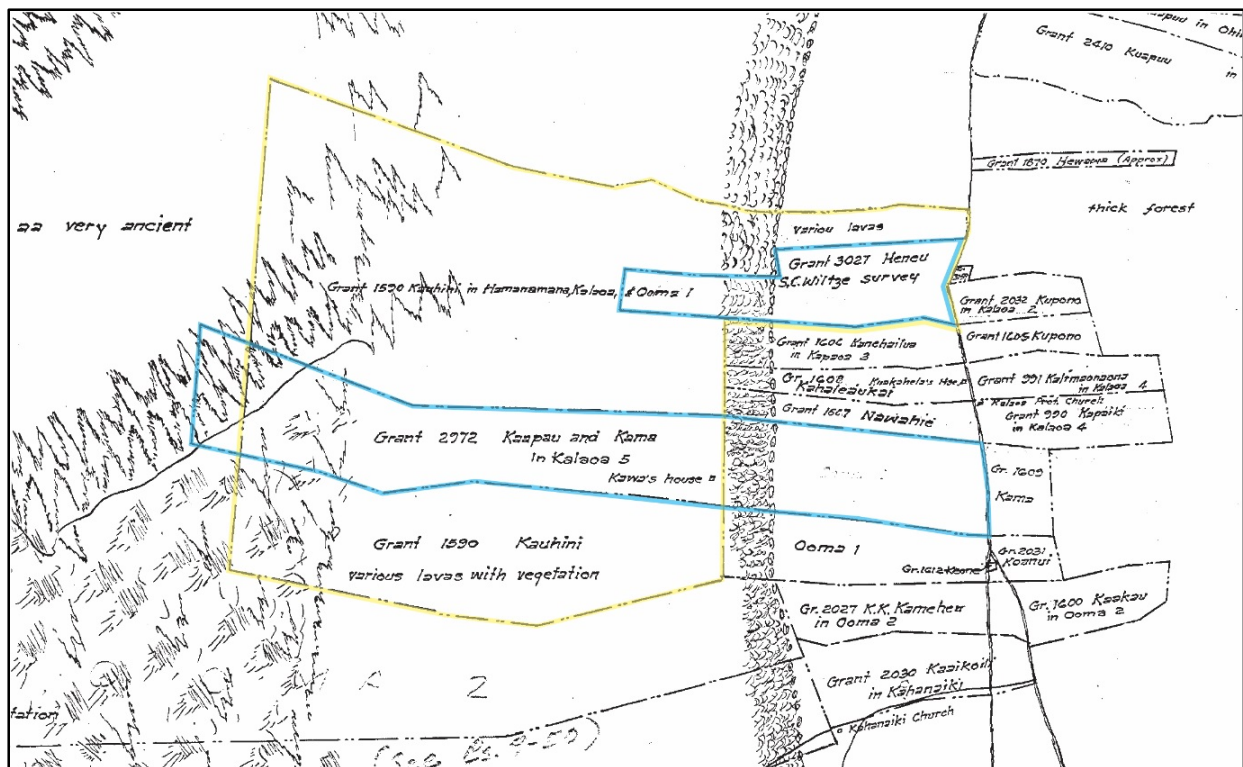 Grant 2410 Kuapuu
in
Grant 1870 Hewapua (Approx)
thick forest
aa very ancient
variou lavas
Grant 3027 Heneu
S.C. Wiltze survey
Grant 1590 Kauhini in Hamanamana, Kalaoa, & Ooma 1
Grant 2032 Kupono
in Kalaoa 2
Grant 1605 Kupono
Grant 1606 Kanehailua
in Kapaoa 3
Gr. 1608
Kahaleaukai
Kuakahela's Hse.
Grant 991 Kalimaonaona
in Kalaoa 4
Kalaoa Prot. Church
Grant 990 Kapaiki
in Kalaoa 4
Nawahie
Grant 2972 Kaapau and Kama
in Kalaoa 5
Kawa's house
Gr. 1609
Kama
Grant 1590 Kauhini
various lavas with vegetation
Ooma 1
Gr. 2031
Koanui
Gr. 1612 Keone
Gr. 2027 K.K. Kameheu
in Ooma 2
Gr. 1600 Kaakau
in Ooma 2
2
Grant 2030 Kaaikoili
in Kahanaiki
Kohanaiki Church